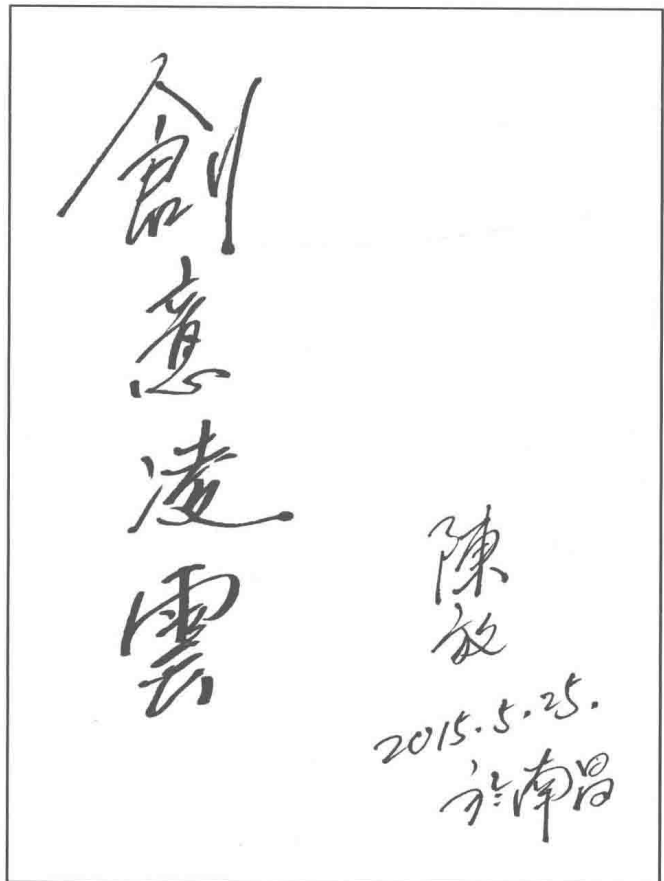 創意凌雲
陳放
2015.5.25.
於南昌